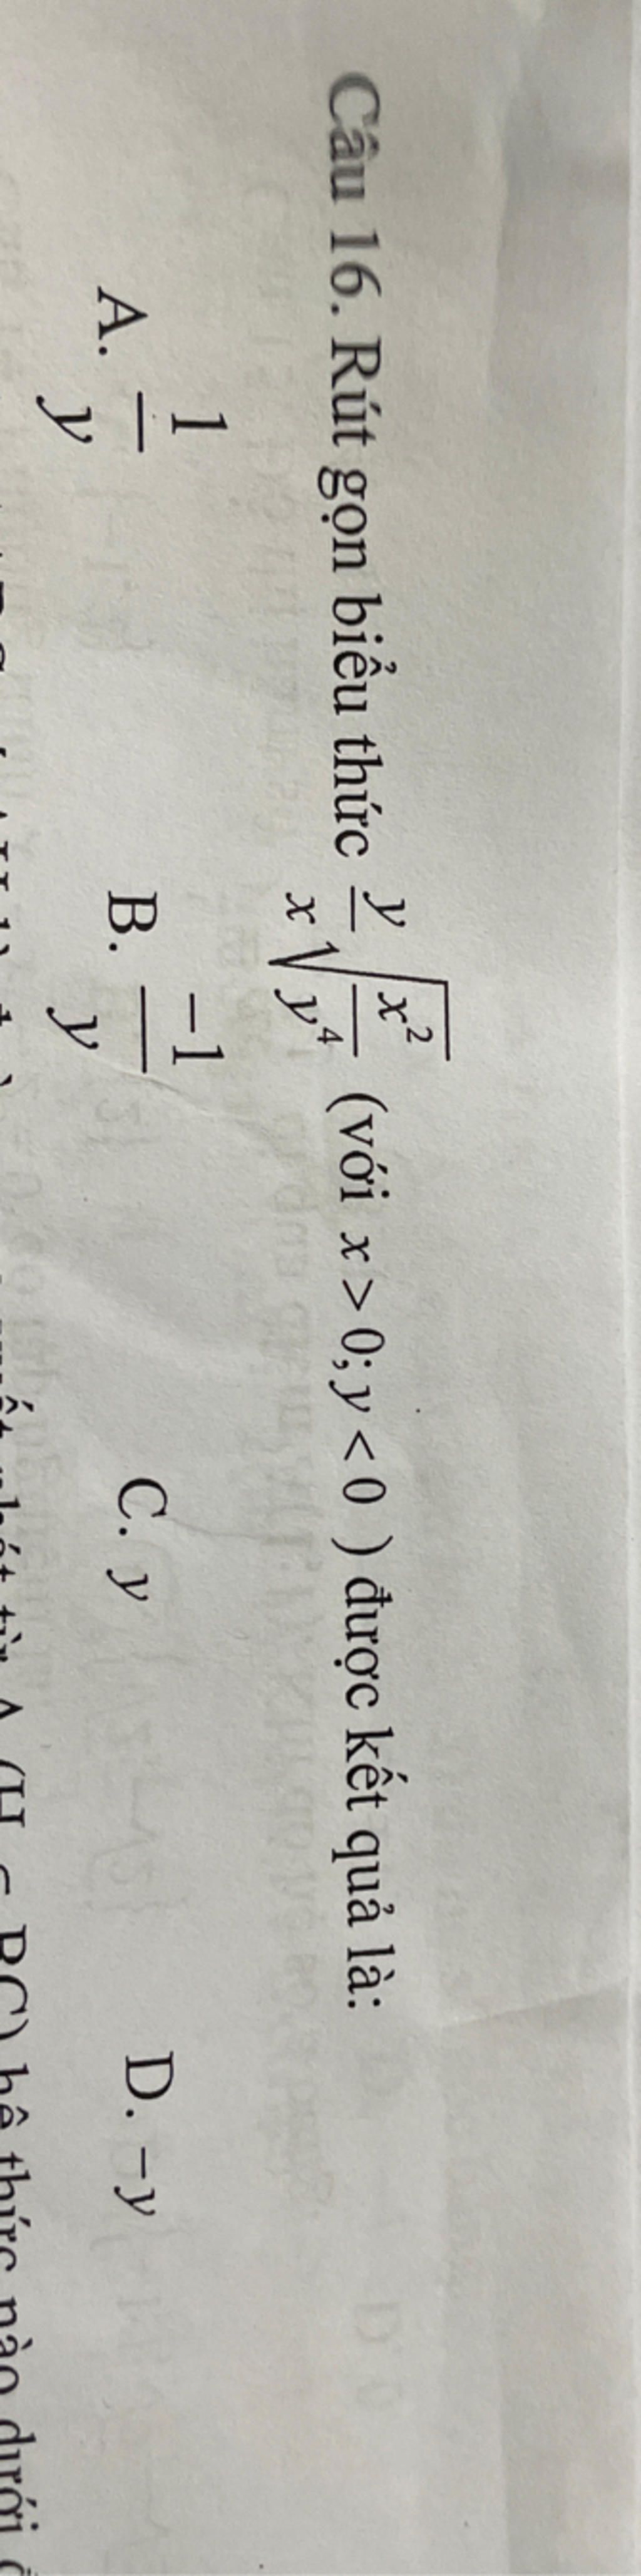 Câu 16. Rút gọn biểu thức $\frac{y}{x}\sqrt{\frac{x^2}{y^4}}$ (với x > 0; y < 0 ) được kết quả là:
A. $\frac{1}{y}$ B. $\frac{-1}{y}$ C. y D. -y
(H ∈ BC) hệ thức nào dưới